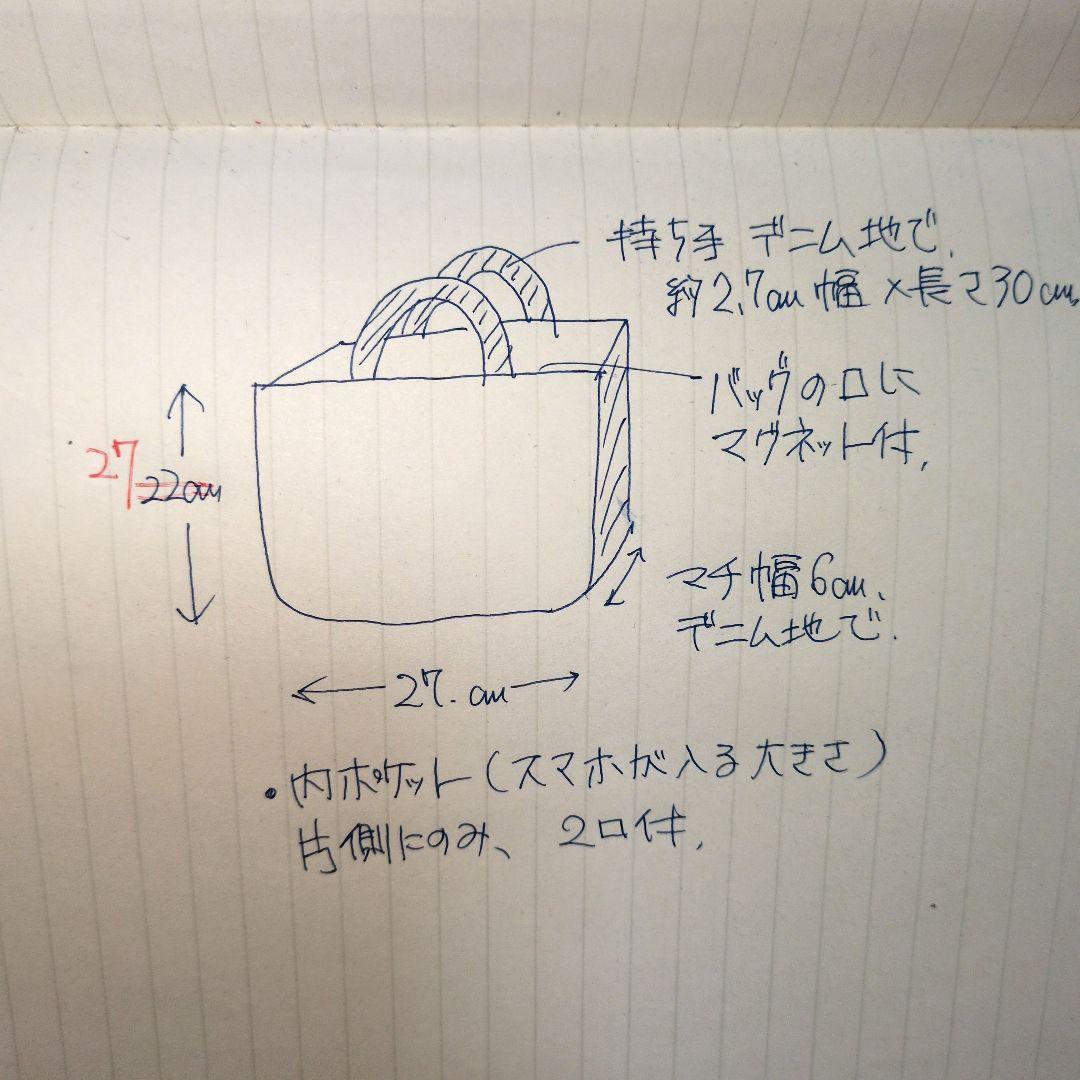 持ち手 デニム地で、
約2.7cm幅×長さ30cm。
バッグの口に
マグネット付。
27
22cm
マチ幅6cm、
デニム地で。
27.cm
・内ポケット(スマホが入る大きさ)
片側にのみ、 2口付。